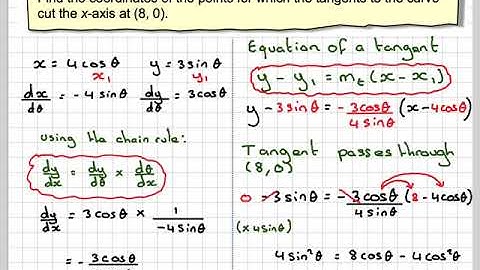 Find the coordinates of the points for which the tangents to the curve
cut the x-axis at (8, 0).
x = 4cosθ y = 3sinθ
x₁ y₁
dx/dθ = -4sinθ dy/dθ = 3cosθ
using the chain rule:
dy/dx = dy/dθ × dθ/dx
dy/dx = 3cosθ × 1/-4sinθ
= - 3cosθ
Equation of a tangent
y - y₁ = mₜ(x - x₁)
y - 3sinθ = -3cosθ/4sinθ (x - 4cosθ)
Tangent passes through
(8,0)
0 - 3sinθ = -3cosθ/4sinθ (8 - 4cosθ)
(×4sinθ)
4sin²θ = 8cosθ - 4cos²θ